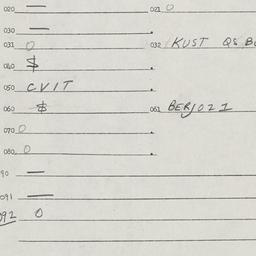 020 — 021 0
030 —
031 0 032 KUST QS
040 $
050 CVIT
060 $ 061 BERJOZI
070 0
080 0
90 —
091 —
092 0